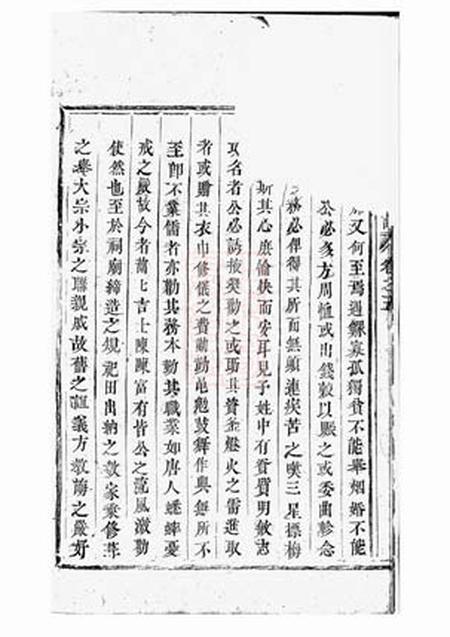 卷之五
又何至焉遇鰥寡孤獨貧不能舉烟婚不能
公必多方周恤或出錢穀以賑之或委曲軫念
務必俾得其所而無顛連疾苦之嘆三星摽梅
斯其心庶愉快而安耳見子姓中有資質明敏志
取名者公必誘掖獎勸之或助其資釜燈火之需進取
者或贈其衣巾修儀之費勷勤黽勉鼓舞作興無所不
至即不業儒者亦勒其務本勤其職業如唐人蟋蟀憂
戒之嚴故今者藹吉士陳陳富有皆公之流風激勒
使然也至於祠廟締造之規祀田出納之數家乘修葺
之舉大宗小宗之聯親戚故舊之誼義方教誨之嚴好